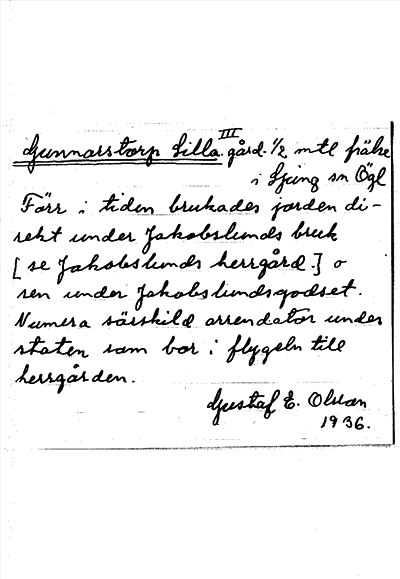 III
Gunnarstorp Lilla. gård. 1/2 mtl frälse
i Ljung sn Ögl
Förr i tiden brukades jorden di-
rekt under Jakobslunds bruk
[se Jakobslunds herrgård.] o
sen under Jakobslundsgodset.
Numera särskild arrendator under
staten som bor i flygeln till
herrgården.
Gustaf E. Olsson
1936.